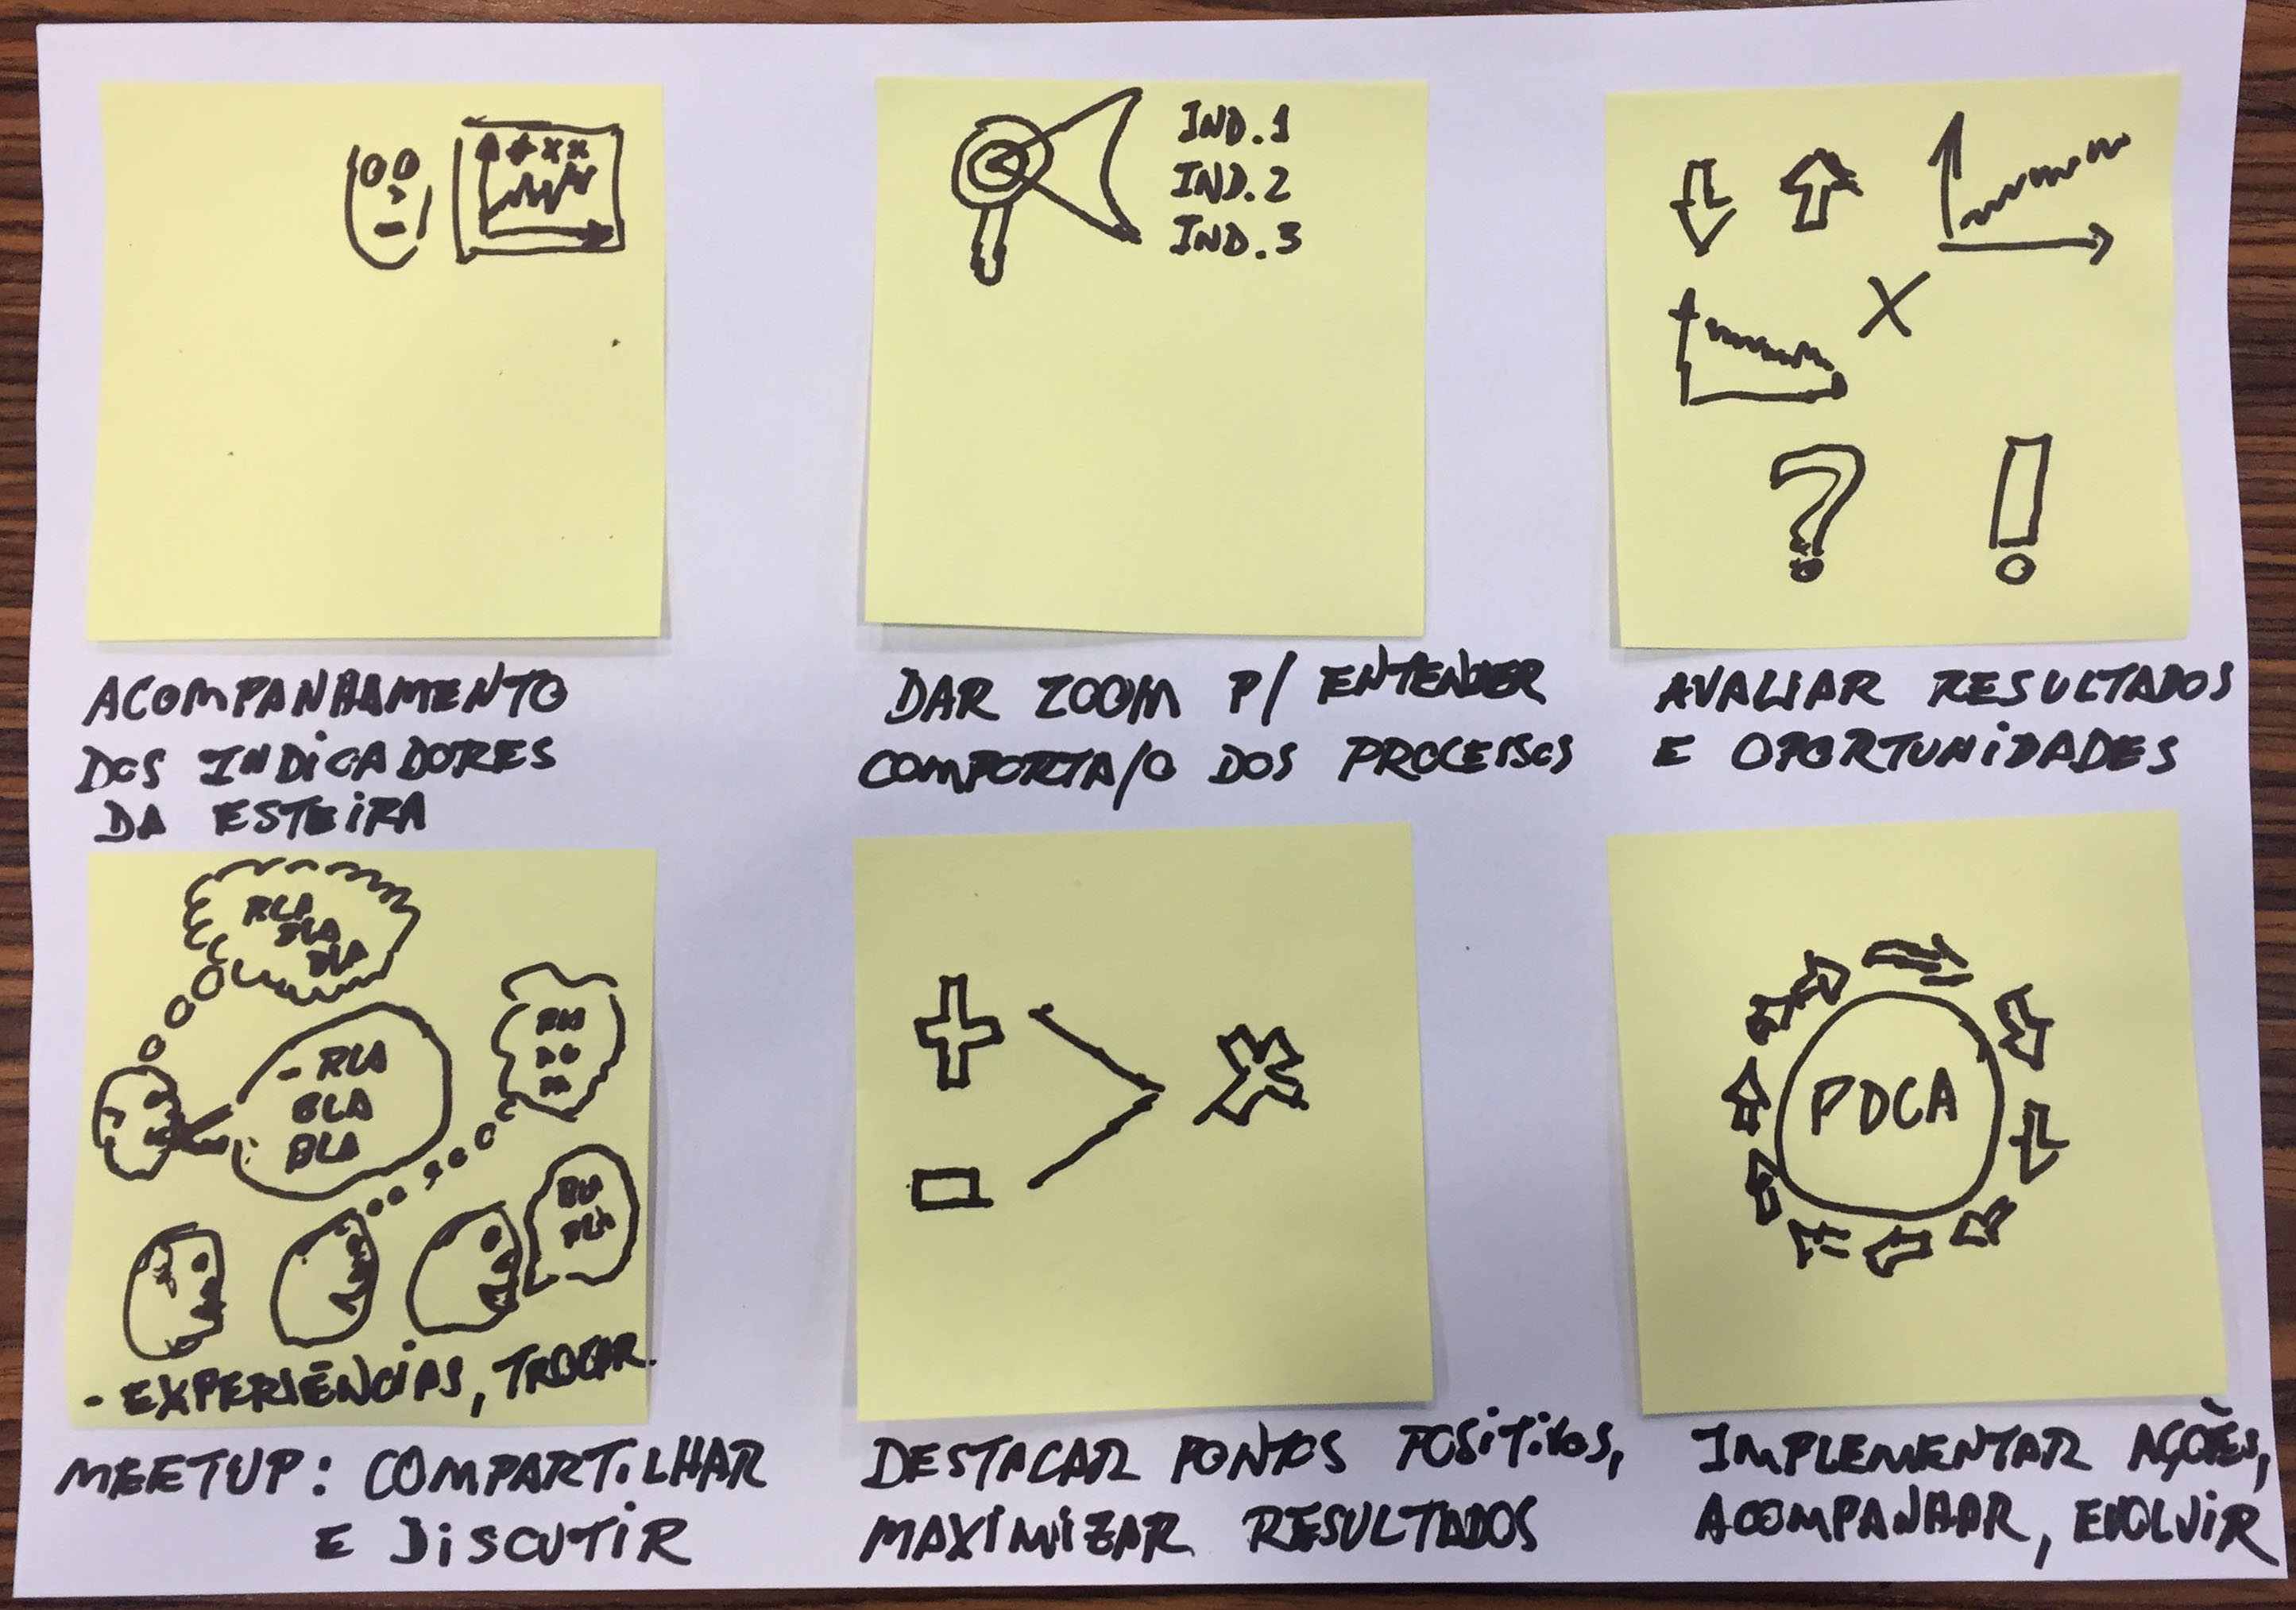 IND.1
IND.2
IND.3
ACOMPANHAMENTO
DOS INDICADORES
DA ESTEIRA
DAR ZOOM P/ ENTENDER
COMPORTA/O DOS PROCESSOS
AVALIAR RESULTADOS
E OPORTUNIDADES
BLA
BLA
BLA
- BLA
BLA
BLA
BLA
BLA
- EXPERIÊNCIAS, TROCAR.
MEETUP: COMPARTILHAR
E DISCUTIR
DESTACAR PONTOS POSITIVOS,
MAXIMIZAR RESULTADOS
PDCA
IMPLEMENTAR AÇÕES,
ACOMPANHAR, EVOLUIR